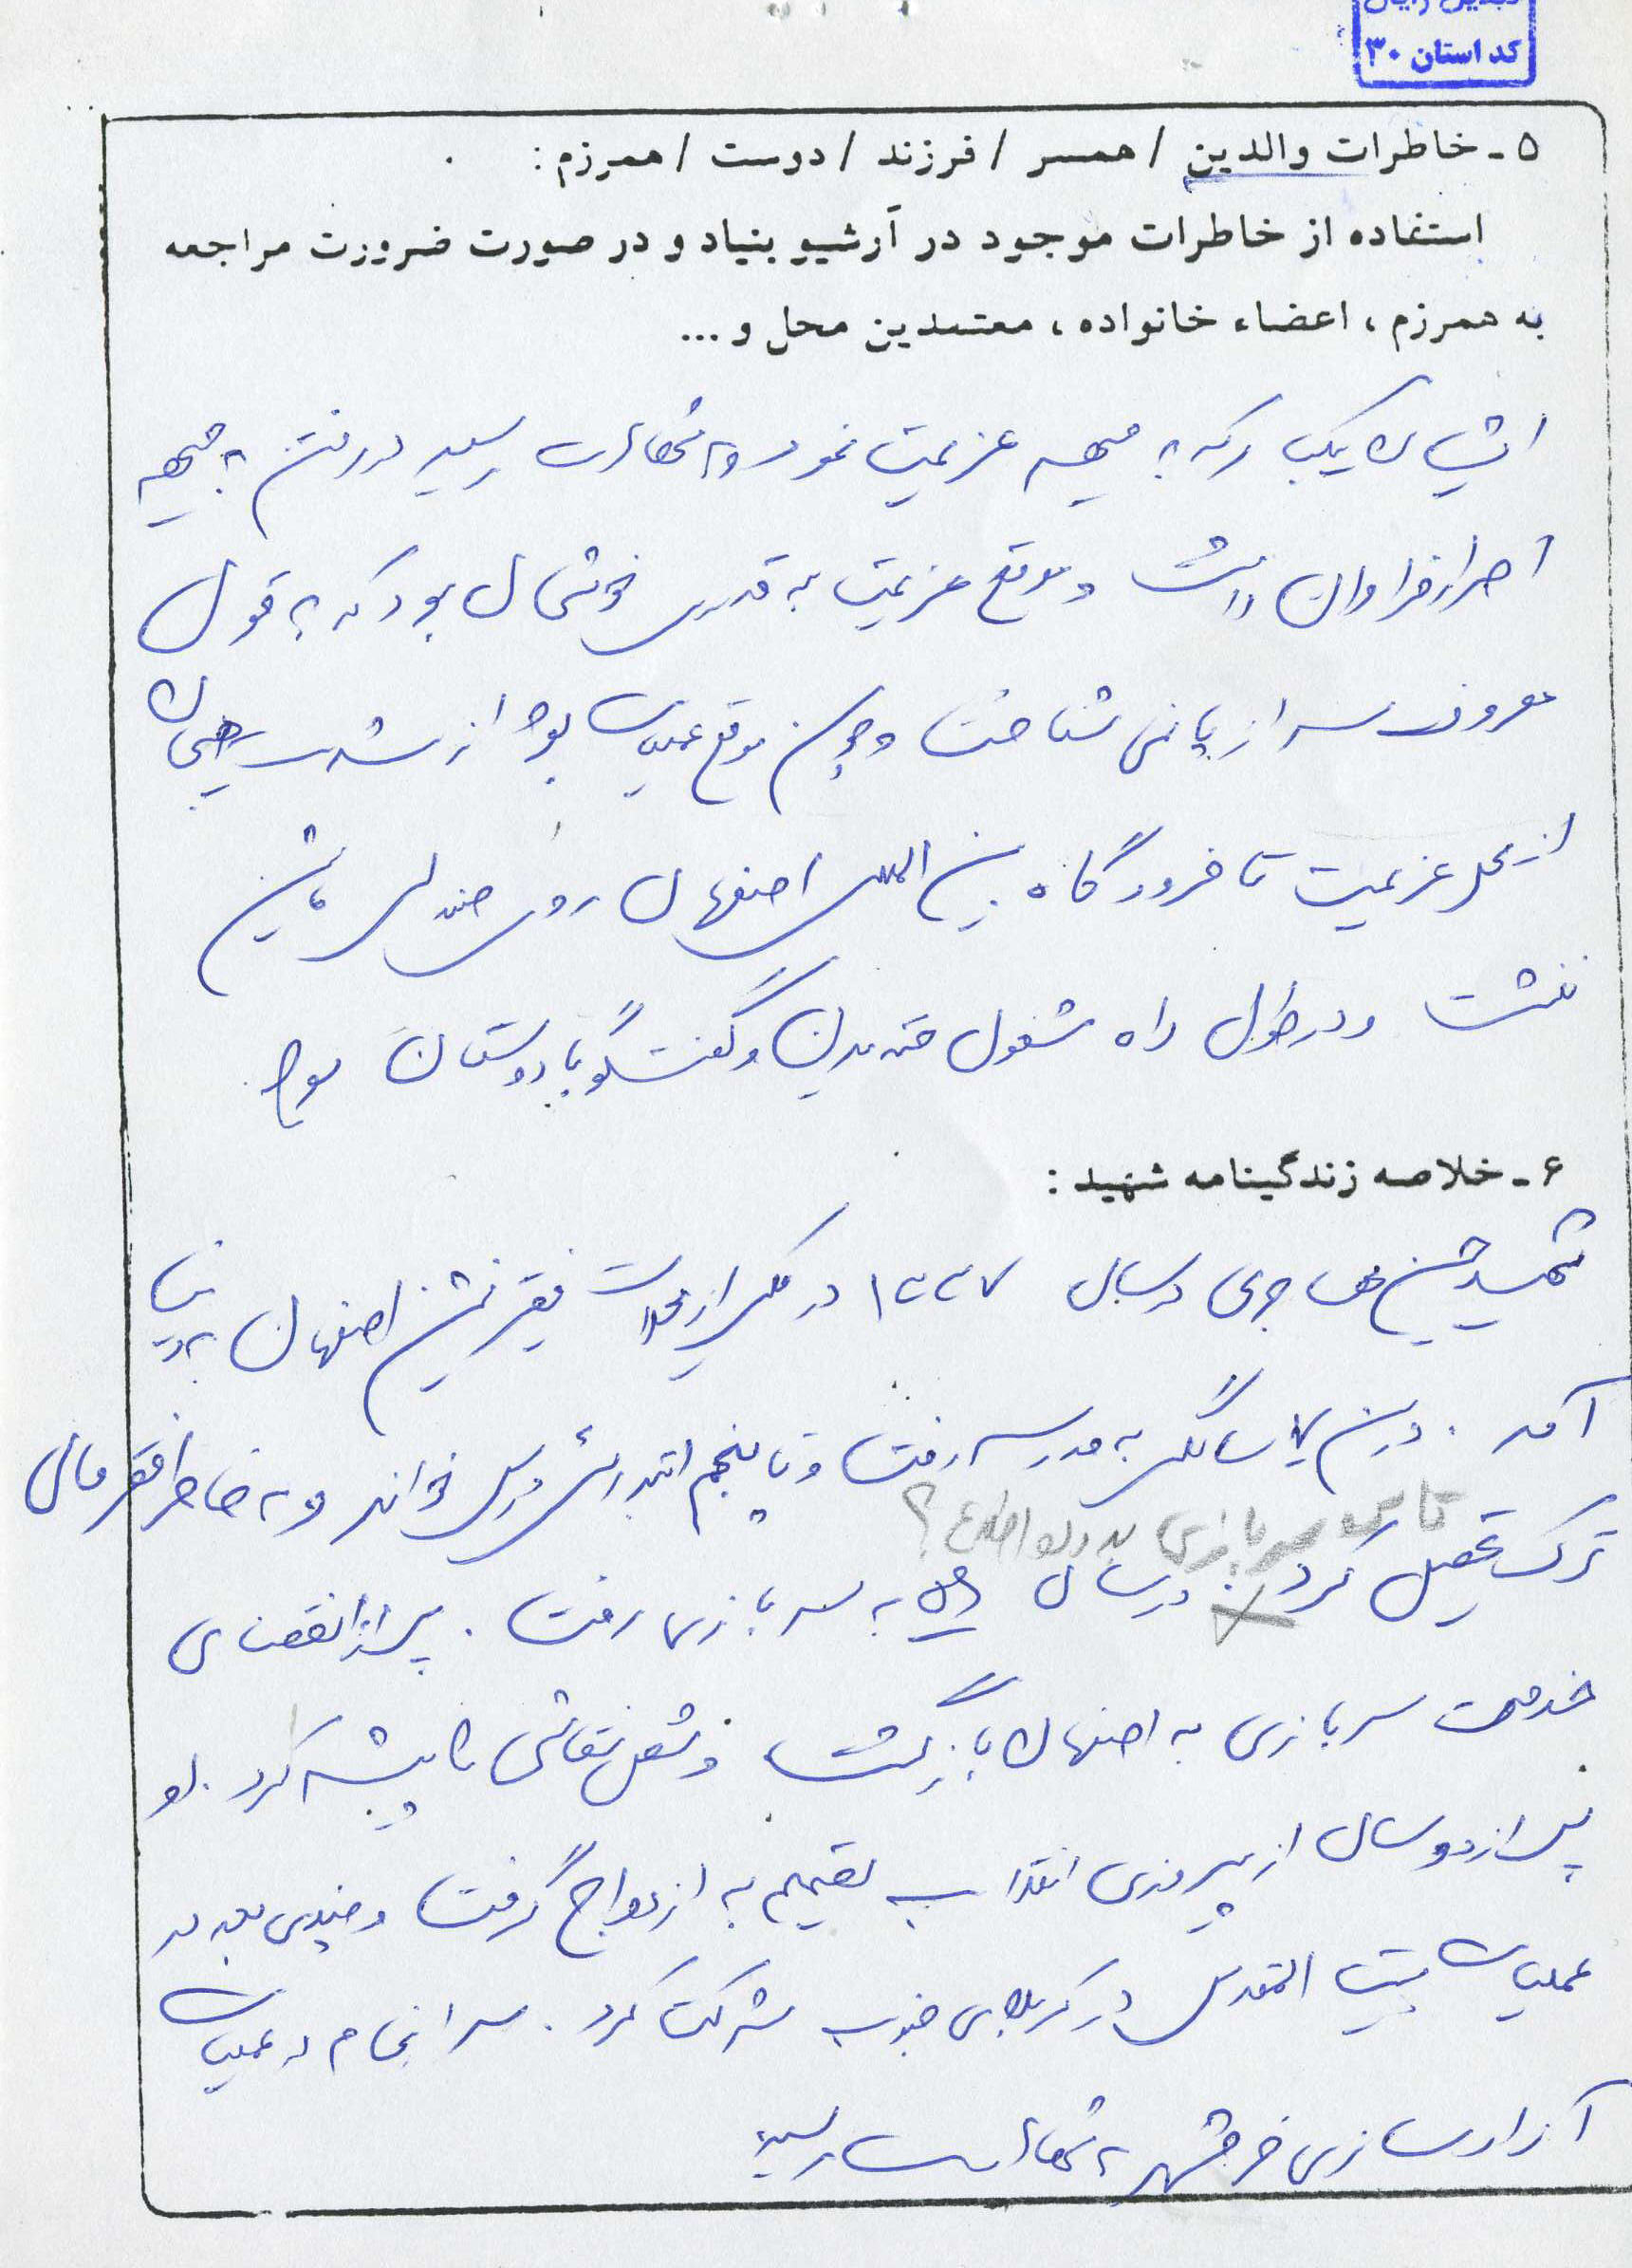 کد استان ۳۰
۵ - خاطرات والدین / همسر / فرزند / دوست / همرزم :
استفاده از خاطرات موجود در آرشیو بنیاد و در صورت ضرورت مراجعه
به همرزم ، اعضاء خانواده ، معتمدین محل و ...
ایشان یکبار که به جبهه عزیمت نمود و به شهادت رسید در رفتن به جبهه
اصرار فراوان داشت و موقع عزیمت به قدری خوشحال بود که به قول
معروف سر از پا نمی شناخت و چون موقع عملیات بود از شدت
از محل عزیمت تا فرودگاه بین المللی اصفهان روی صندلی ماشین
ننشست و در طول راه مشغول خندیدن و گفتگو با دوستان بود.
۶ - خلاصه زندگینامه شهید :
شهید حسین در سال ۱۳۳۷ در یکی از محلات فقیر نشین اصفهان بدنیا
آمد . در سن ۷ سالگی به مدرسه رفت و تا پنجم ابتدائی درس خواند و به خاطر فقر مالی
تا سربازی ؟
ترک تحصیل کرد . در سال به سربازی رفت . پس از انقضای
خدمت سربازی به اصفهان بازگشت و شغل نقاشی را پیشه کرد . او
پس از دو سال از پیروزی انقلاب تصمیم به ازدواج گرفت و چندی بعد در
عملیات بیت المقدس در کربلای جنوب شرکت کرد . سرانجام در عملیات
آزادسازی خرمشهر به شهادت رسید